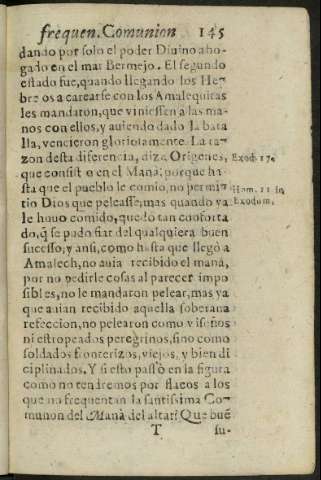 frequen. Comunion 145
dando por solo el poder Diuino aho-
gado en el mar Bermejo. El segundo
estado fue, quando llegando los He-
breos a carearse con los Amalequitas
les mandaron, que viniessen a las ma-
nos con ellos, y auiendo dado la bata
lla, vencieron gloriosamente. La ra-
zon desta diferencia, dize Origenes, Exod. 17.
que consistio en el Manà: porque ha-
sta que el pueblo le comio, no permi- Hom. 11 in
tio Dios que peleasse, mas quando ya Exodum.
le houo comido, quedo tan conforta
do, q̃ se pudo fiar del qualquiera buen
sucesso, y ansi, como hasta que llegò a
Amalech, no auia recibido el manà,
por no pedirle cosas al parecer impo
sibles, no le mandaron pelear, mas ya
que auian recibido aquella soberana
refeccion, no pelearon como visoños
ni estropeados peregrinos, sino como
soldados fronterizos, viejos, y bien di
ciplinados. Y si esto passò en la figura
como no tendremos por flacos a los
que no frequentan la santissima Co-
munon del Manà del altar? Que buẽ
T su-